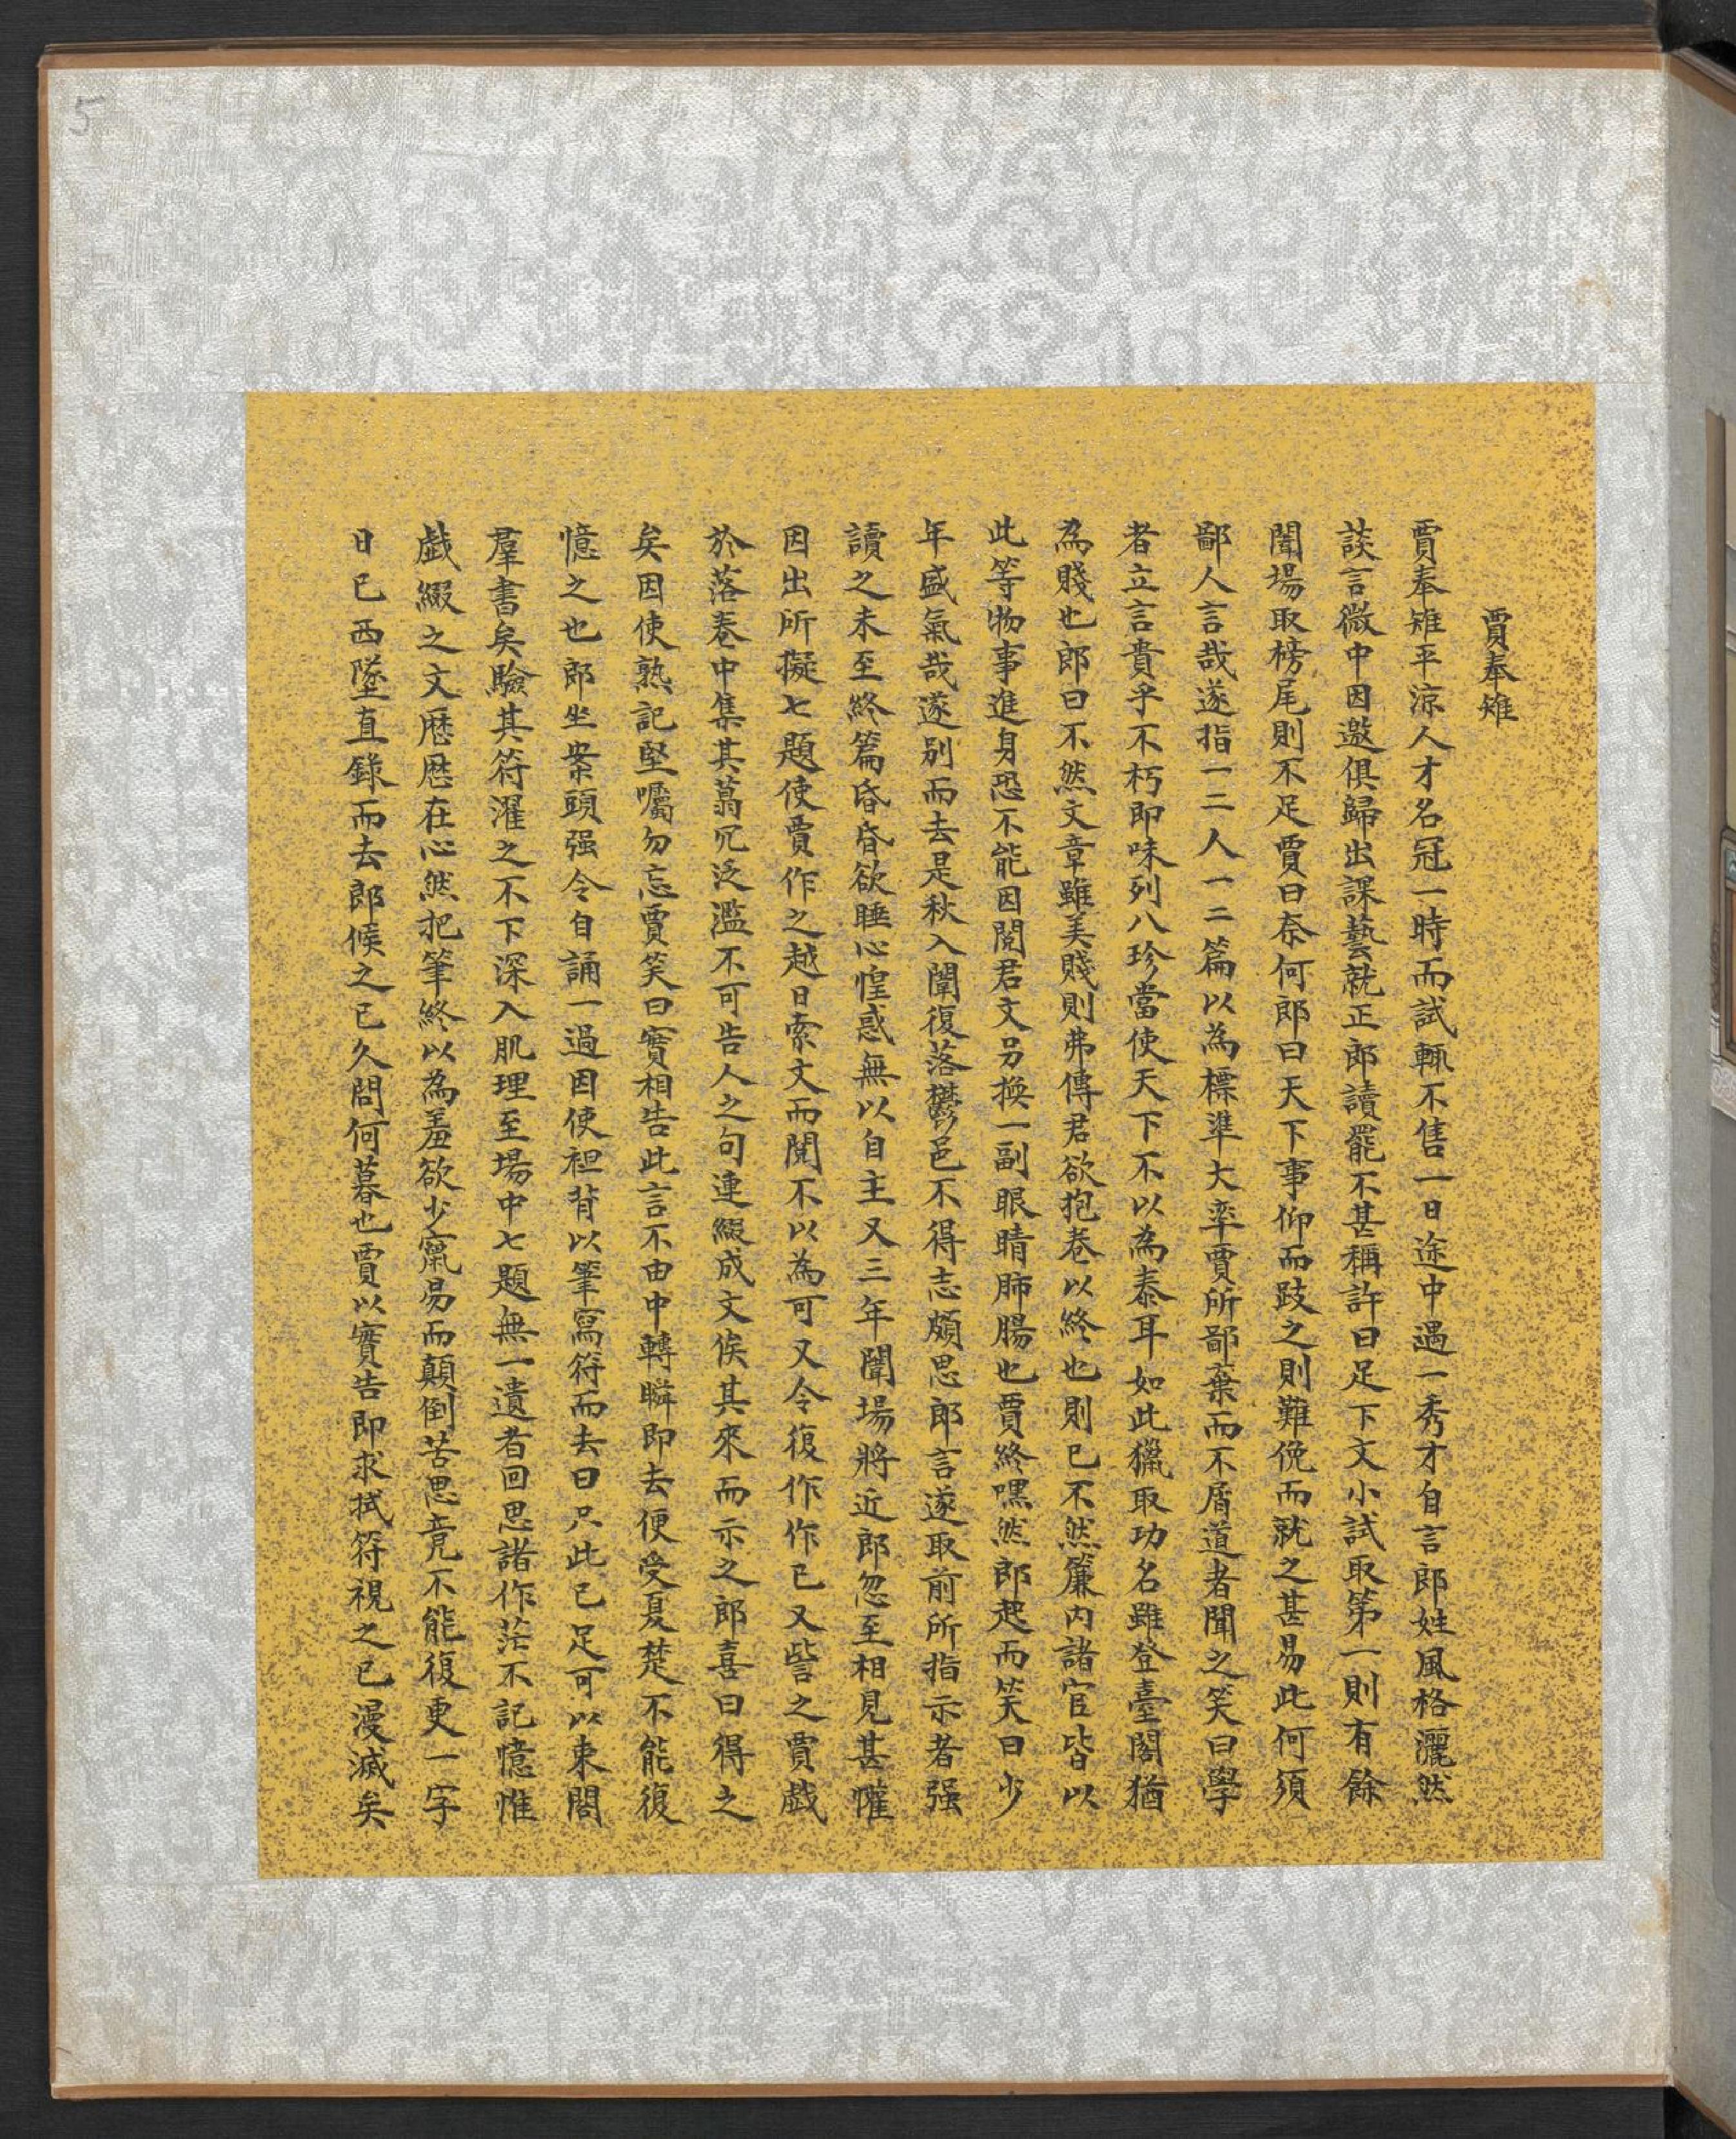 5
賈奉雉
賈奉雉平涼人才名冠一時而試輒不售一日途中遇一秀才自言郎姓風格灑然
談言微中因邀俱歸出課藝就正郎讀罷不甚稱許曰足下文小試取第一則有餘
闈場取榜尾則不足賈曰奈何郎曰天下事仰而跂之則難俛而就之甚易此何須
鄙人言哉遂指一二人一二篇以為標準大率賈所鄙棄而不屑道者聞之笑曰學
者立言貴乎不朽即味列八珍當使天下不以為泰耳如此獵取功名雖登臺閣猶
為賤也郎曰不然文章雖美賤則弗傳君欲抱卷以終也則已不然簾內諸官皆以
此等物事進身恐不能因閱君文另換一副眼睛肺腸也賈終嘿然郎起而笑曰少
年盛氣哉遂別而去是秋入闈復落鬱邑不得志頗思郎言遂取前所指示者强
讀之未至終篇昏昏欲睡心惶惑無以自主又三年闈場將近郎忽至相見甚懽
因出所擬七題使賈作之越日索文而閱不以為可又令復作作已又訾之賈戲
於落卷中集其蕮冗泛濫不可告人之句連綴成文俟其來而示之郎喜曰得之
矣因使熟記堅囑勿忘賈笑曰實相告此言不由中轉瞬即去便受夏楚不能復
憶之也郎坐案頭强令自誦一過因使袒背以筆寫符而去曰只此已足可以束閣
羣書矣驗其符濯之不下深入肌理至場中七題無一遺者回思諸作茫不記憶惟
戲綴之文歷歷在心然把筆終以為羞欲少竄易而顛倒苦思竟不能復更一字
日已西墜直錄而去郎候之已久問何暮也賈以實告即求拭符視之已漫滅矣